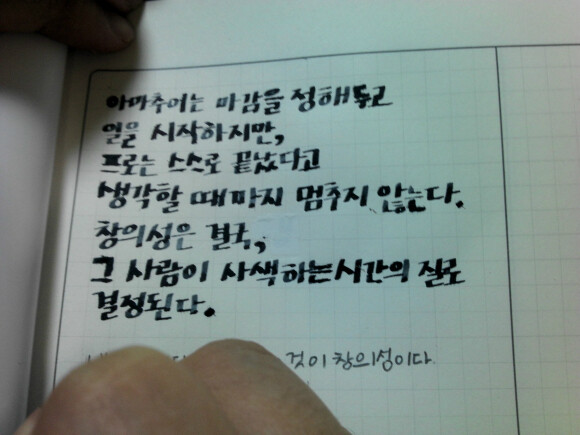 아마추어는 마감을 정해두고
일을 시작하지만,
프로는 스스로 끝났다고
생각할 때까지 멈추지 않는다.
창의성은 결국,
그 사람이 사색하는 시간의 질로
결정된다.
것이 창의성이다.